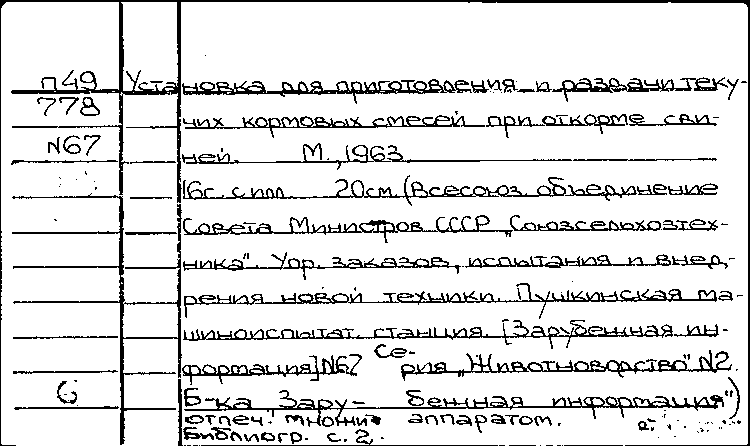 п49 Установка для приготовления и раздачи теку-
778
чих кормовых смесей при откорме сви-
N67
ней. М., 1963.
16с. с илл. 20см. (Всесоюз. объединение
Совета Министров СССР „Союзсельхозтех-
ника". Упр. заказов, испытания и внед-
рения новой техники. Пушкинская ма-
шиноиспытат. станция. [Зарубежная ин-
формация] N67 Се-
рия „Животноводство" N2.
Б-ка Зару- бежная информация")
6
отпеч. множит аппаратом.
Библиогр. с. 2.